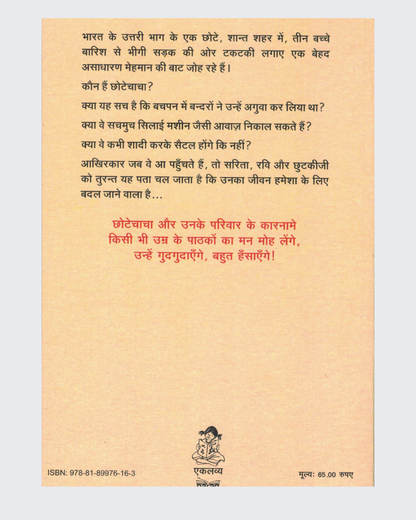 भारत के उत्तरी भाग के एक छोटे, शान्त शहर में, तीन बच्चे
बारिश से भीगी सड़क की ओर टकटकी लगाए एक बेहद
असाधारण मेहमान की बाट जोह रहे हैं।
कौन हैं छोटेचाचा?
क्या यह सच है कि बचपन में बन्दरों ने उन्हें अगुवा कर लिया था?
क्या वे सचमुच सिलाई मशीन जैसी आवाज़ निकाल सकते हैं?
क्या वे कभी शादी करके सैटल होंगे कि नहीं?
आखिरकार जब वे आ पहुँचते हैं, तो सरिता, रवि और छुटकीजी
को तुरन्त यह पता चल जाता है कि उनका जीवन हमेशा के लिए
बदल जाने वाला है...
छोटेचाचा और उनके परिवार के कारनामे
किसी भी उम्र के पाठकों का मन मोह लेंगे,
उन्हें गुदगुदाएँगे, बहुत हँसाएँगे!
एकलव्य
ISBN: 978-81-89976-16-3
मूल्य: 65.00 रुपए